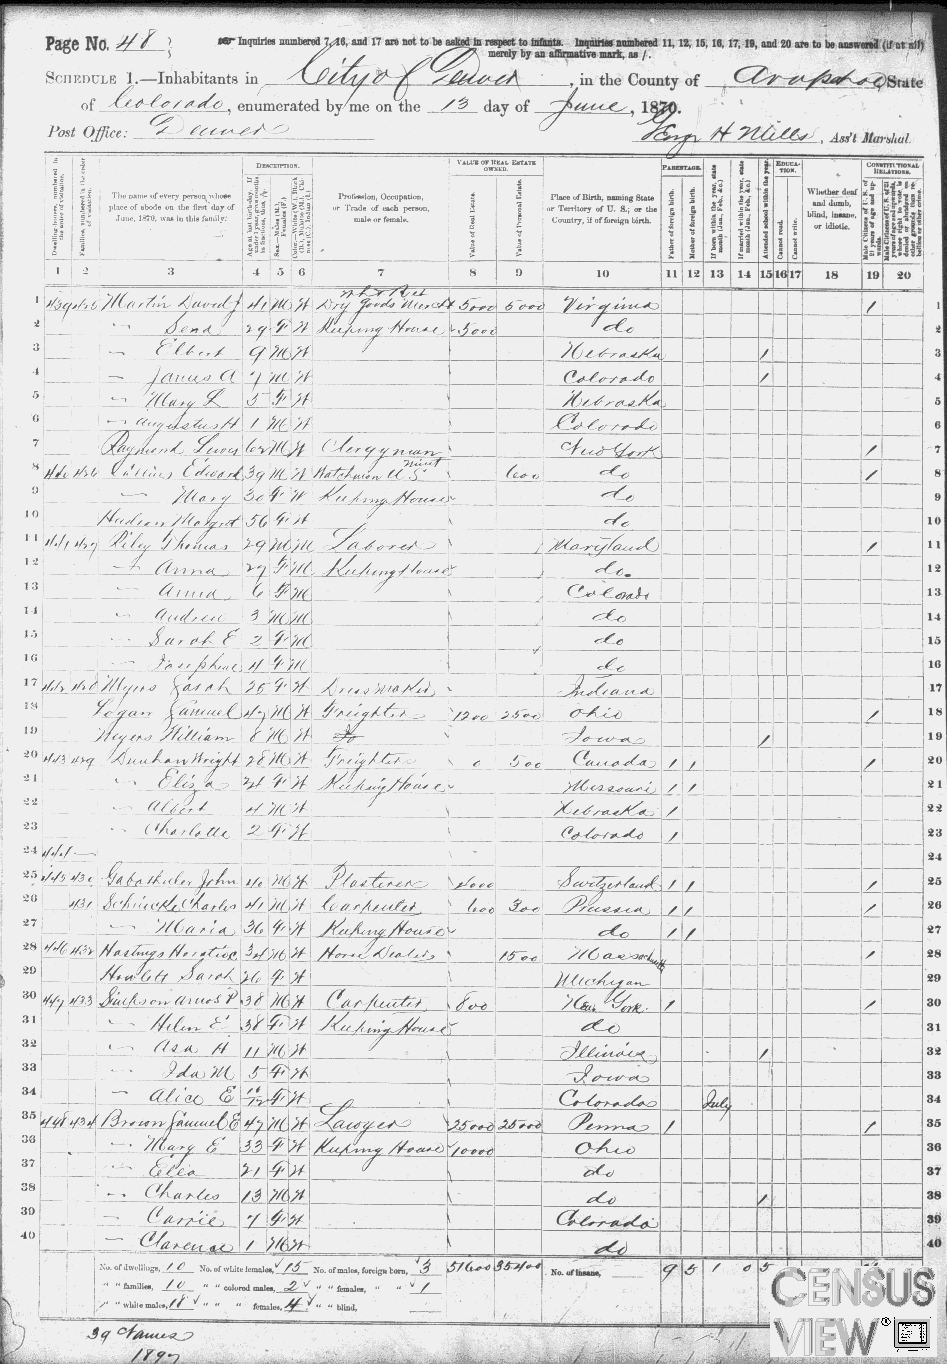 Page No. 48
Inquiries numbered 7, 16, and 17 are not to be asked in respect to infants. Inquiries numbered 11, 12, 15, 16, 17, 19, and 20 are to be answered (if at all)
merely by an affirmative mark, as /.
SCHEDULE 1.—Inhabitants in City of Denver, in the County of Arapahoe, State
of Colorado, enumerated by me on the 13 day of June, 1870.
Post Office: Denver
George H Mills, Ass't Marshal.
DESCRIPTION. VALUE OF REAL ESTATE OWNED. PARENTAGE. EDUCATION. CONSTITUTIONAL RELATIONS.
Dwelling-houses, numbered in the order of visitation.
Families, numbered in the order of visitation.
The name of every person whose place of abode on the first day of June, 1870, was in this family.
Profession, Occupation, or Trade of each person, male or female.
Value of Real Estate.
Value of Personal Estate.
Place of Birth, naming State or Territory of U. S.; or the Country, if of foreign birth.
Father of foreign birth.
Mother of foreign birth.
Attended school within the year.
Cannot read.
Cannot write.
Whether deaf and dumb, blind, insane, or idiotic.
1 2 3 4 5 6 7 8 9 10 11 12 13 14 15 16 17 18 19 20
1 439 425 Martin David J 41 M W Dry Goods Mercht 5000 5000 Virginia / 1
2 " Sena 29 F W Keeping House 3000 do 2
3 " Elbert 9 M W Nebraska / 3
4 " James A 7 M W Colorado / 4
5 " Mary L 5 F W Nebraska 5
6 " Augustus H 1 M W Colorado 6
7 Raymond Lewis 62 M W Clergyman New York / 7
8 440 426 Edward 39 M W Watchman U S Mint 600 do / 8
9 " Mary 30 F W Keeping House do 9
10 Hudson Margret 56 F W do 10
11 441 427 Riley Thomas 29 M M Laborer Maryland / 11
12 " Anna 27 F M Keeping House do 12
13 " Anna 6 F M Colorado 13
14 " Andrew 3 M M do 14
15 " Sarah E 2 F M do 15
16 " Josephine 4 F M do 16
17 442 428 Myers Sarah 25 F W Dressmaker Indiana 17
18 Logan Samuel 47 M W Freighter 1200 2500 Ohio / 18
19 Myers William 8 M W Iowa / 19
20 443 429 Dunham Wright 28 M W Freighter 0 500 Canada / / / 20
21 " Eliza 24 F W Keeping House Missouri / / 21
22 " Albert 4 M W Nebraska / 22
23 " Charlotte 2 F W Colorado / 23
24 444 — 24
25 445 430 John 40 M W Plasterer 2000 Switzerland / / / 25
26 431 Charles 41 M W Carpenter 600 300 Prussia / / / 26
27 " Maria 36 F W Keeping House do / / 27
28 446 432 Hastings Horatio 34 M W Horse Dealer 1500 Massachusetts / 28
29 Howlett Sarah 26 F W Michigan 29
30 447 433 Amos P 38 M W Carpenter 800 New York / / 30
31 " Helen E 38 F W Keeping House do 31
32 " Asa H 11 M W Illinois / 32
33 " Ida M 5 F W Iowa 33
34 " Alice E F W Colorado July 34
35 448 434 Brown Samuel E 47 M W Lawyer 25000 25000 Penna / / 35
36 " Mary E 33 F W Keeping House 10000 Ohio 36
37 " Ella 21 F W do 37
38 " Charles 13 M W do / 38
39 " Carrie 7 F W Colorado 39
40 " Clarence 1 M W do 40
No. of dwellings, 10 No. of white females, 15 No. of males, foreign born, 3 51600 35400 No. of insane, 9 5 1 0 5
" " families, 10 " " colored males, 2 " " females, " " 1
" " white males, 18 " " " females, 4 " " blind,
39 Names
CENSUS
VIEW